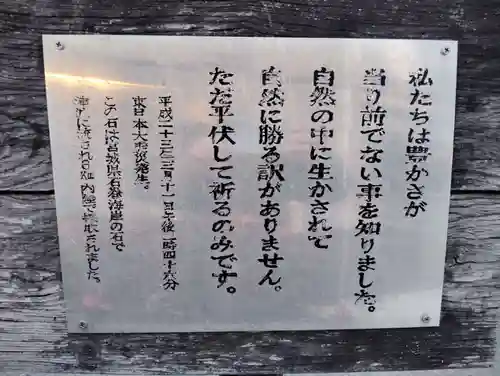 私たちは豊かさが
当り前でない事を知りました。
自然の中に生かされて
自然に勝る訳がありません。
ただ平伏して祈るのみです。
平成二十三年三月十一日午後二時四十六分
東日本大震災発生。
この石は宮城県石巻海岸の石で
津波に流され 内陸で 取されました。